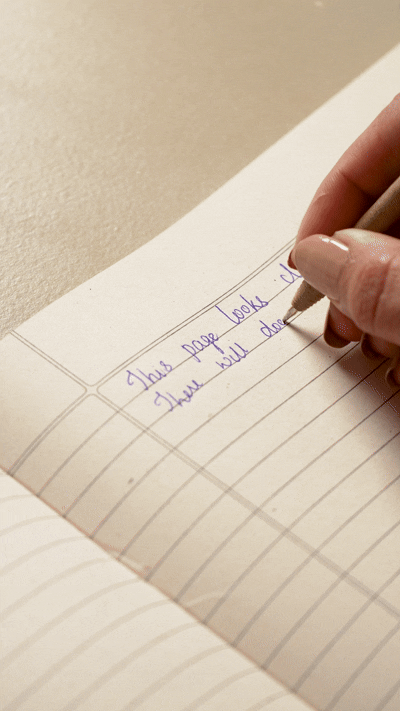 This page looks
There will